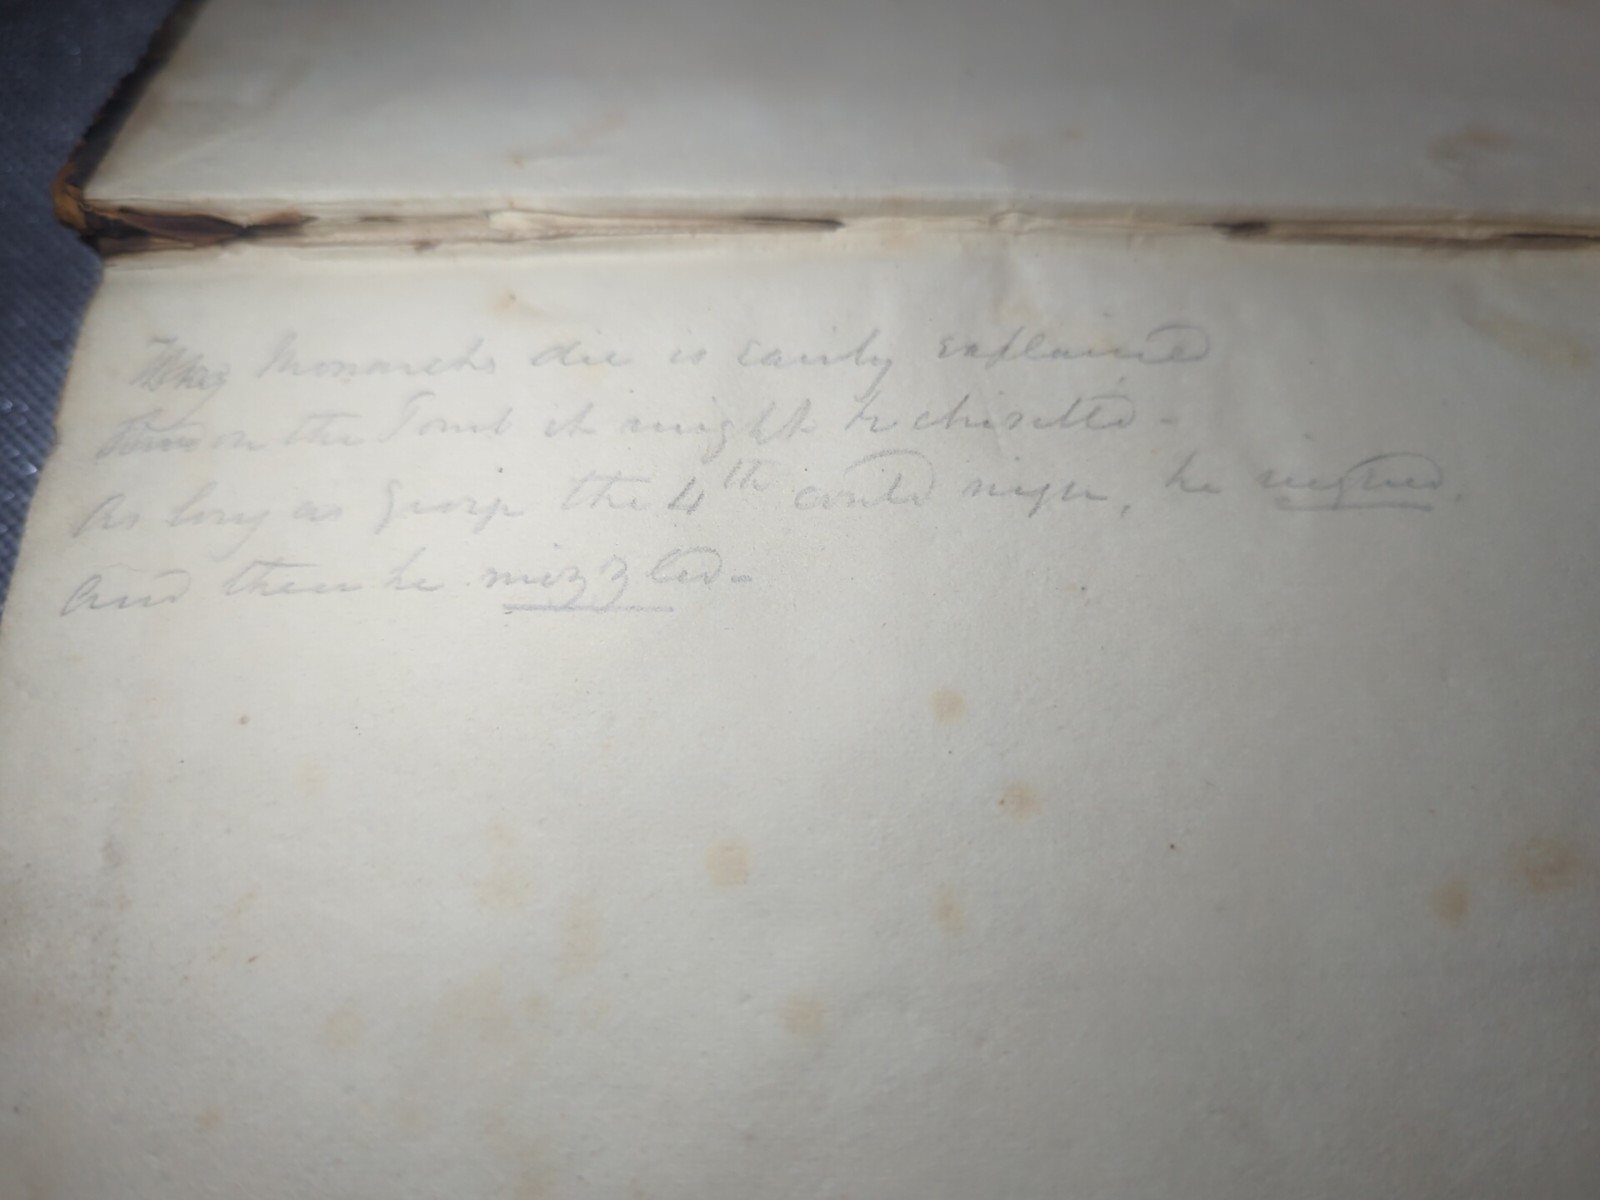 Why Monarchs die is easily explained
on the Tomb it might be chiselled -
As long as George the 4th could reign, he reigned,
And then he mizzled -